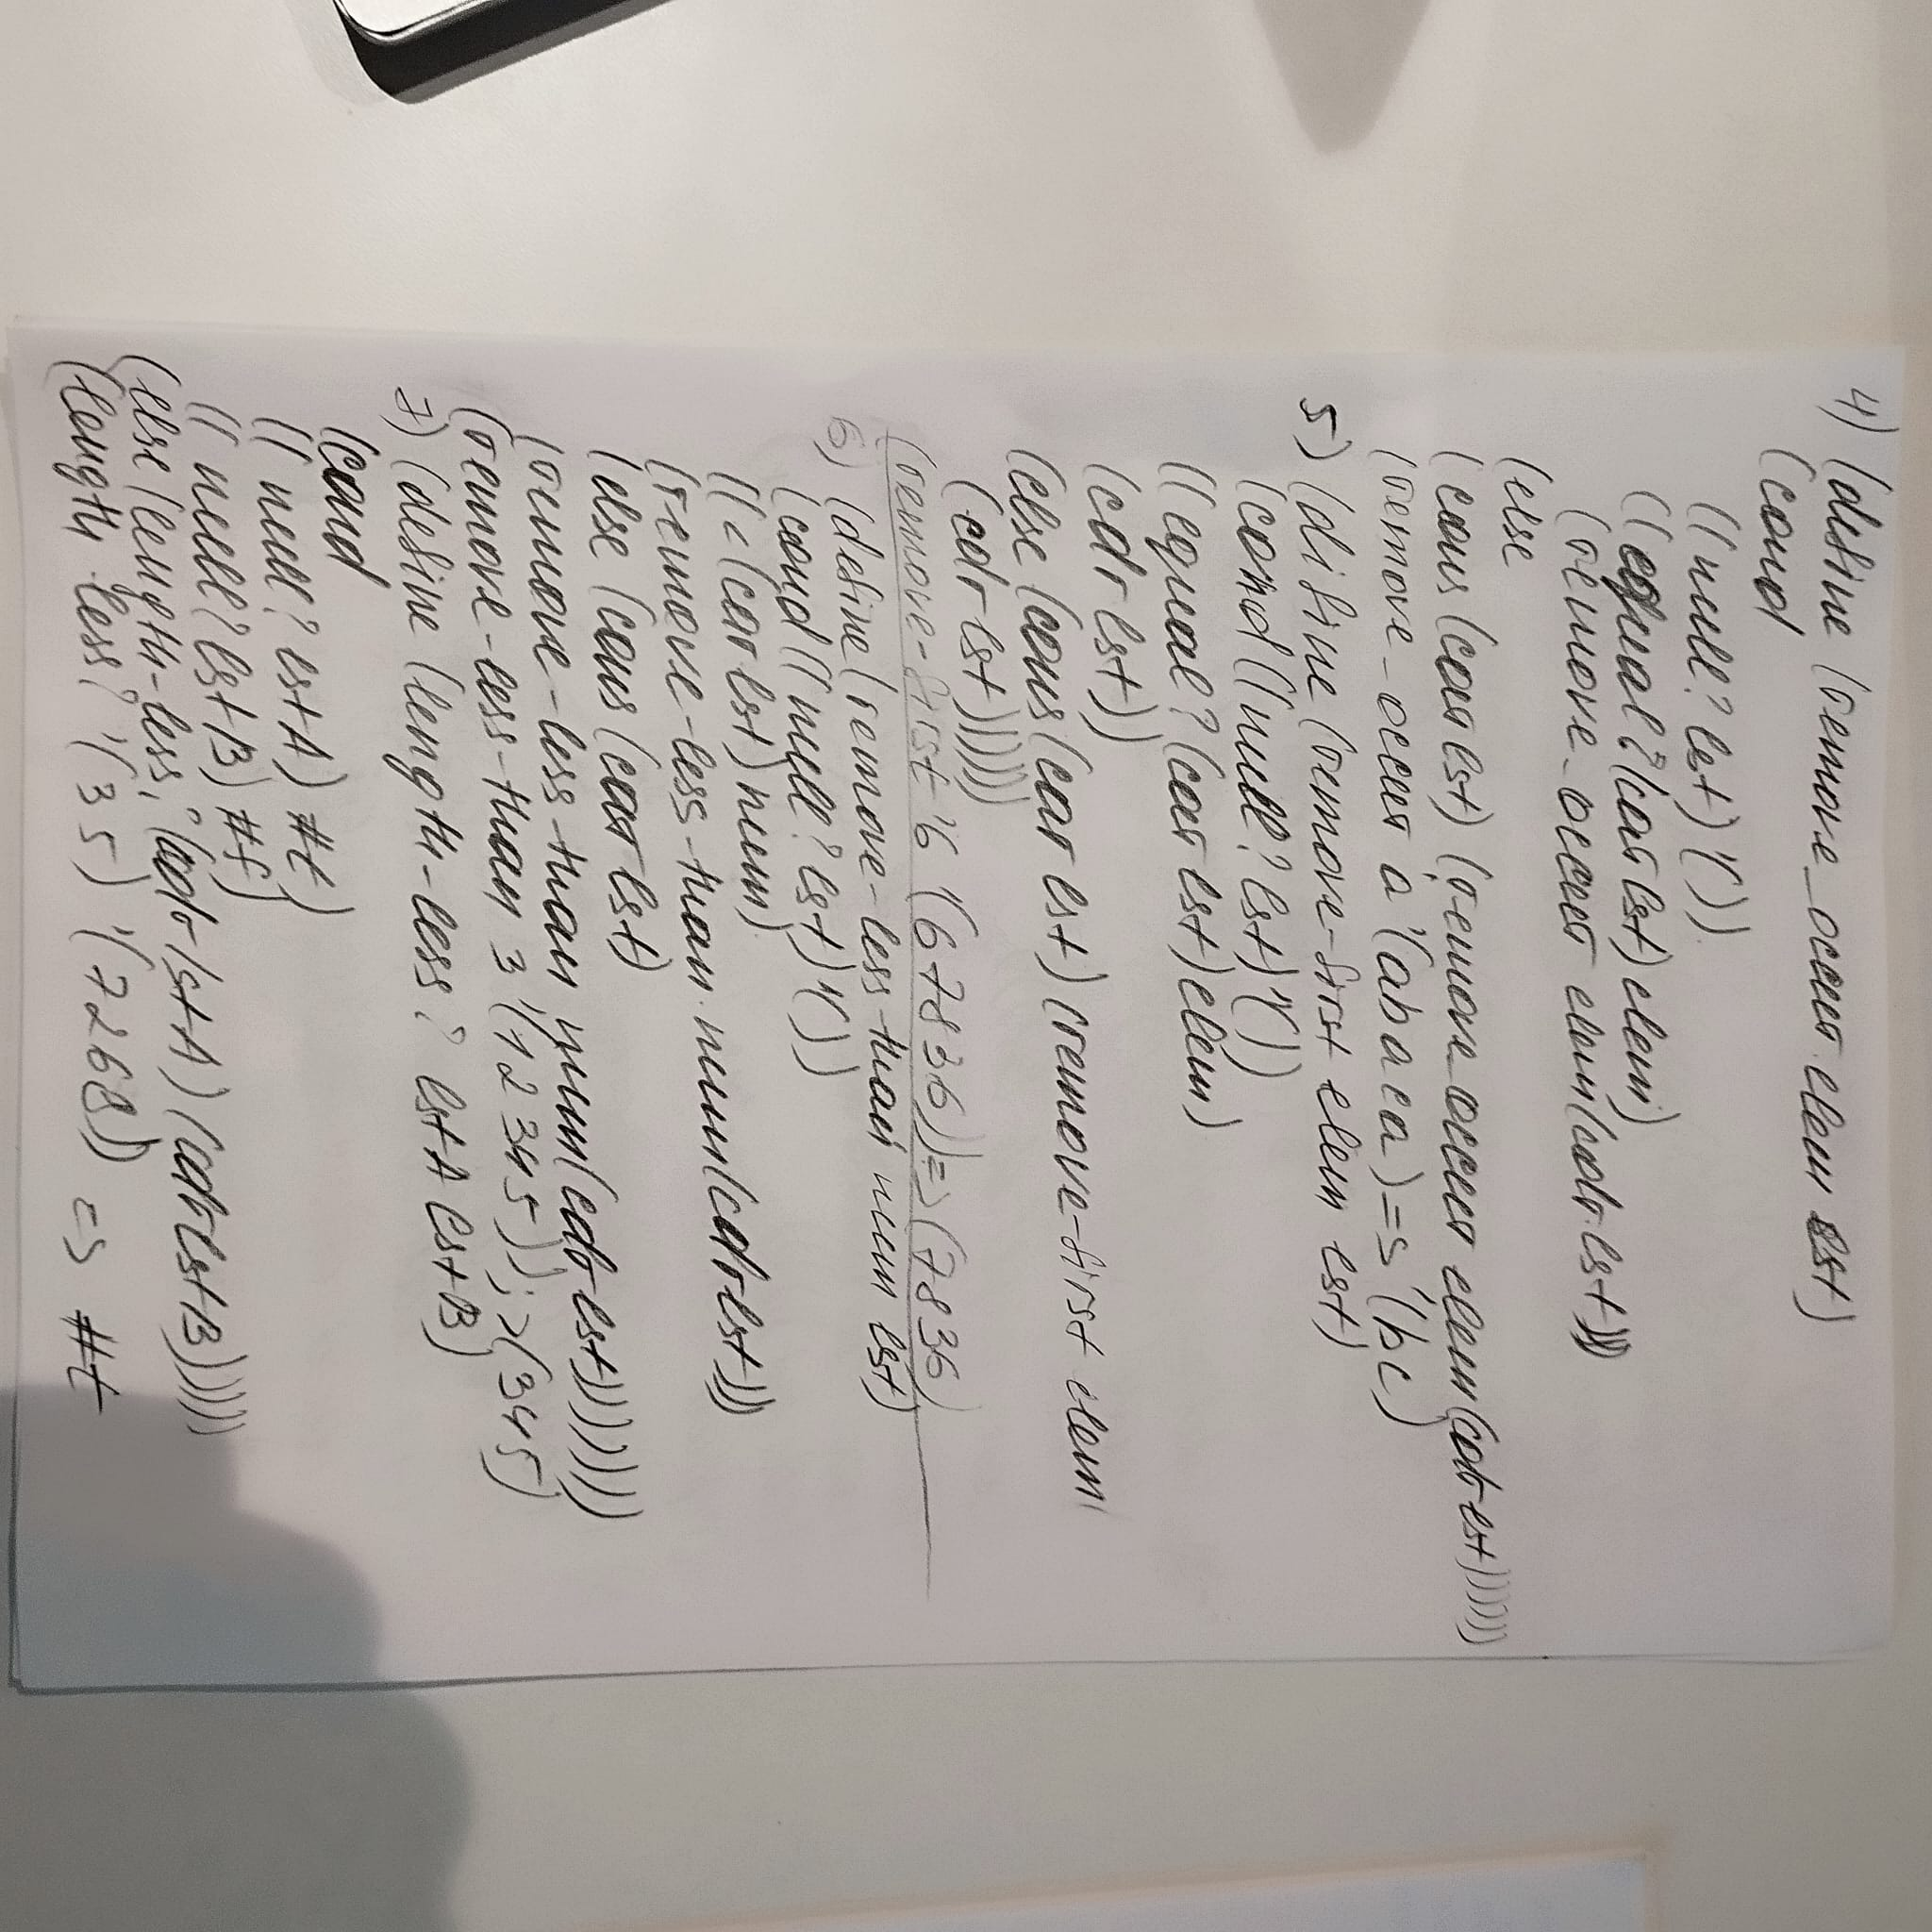 4) (define (remove_occur elem lst)
(cond
((null? lst) '())
((equal? (car lst) elem)
(remove-occur elem (cdr lst)))
(else
(cons (car lst) (remove-occur elem (cdr lst))))))
(remove-occur a '(abaca) => '(bc)
5) (define (remove-first elem lst)
(cond ((null? lst) '())
((equal? (car lst) elem)
(cdr lst))
(else (cons (car lst) (remove-first elem
(cdr lst))))))
(remove-first '6 '(6 7 8 3 6)) => (7 8 3 6)
6) (define (remove-less-than num lst)
(cond ((null? lst) '())
((< (car lst) num)
(remove-less-than num (cdr lst)))
(else (cons (car lst)
(remove-less-than num (cdr lst)))))))
(remove-less-than 3 '(1 2 3 4 5)) ; > (3 4 5)
7) (define (length-less? lstA lstB)
(cond
((null? lstA) #t)
((null? lstB) #f)
(else (length-less? (cdr lstA) (cdr lstB)))))
(length-less? '(3 5) '(7 2 6 8)) => #t